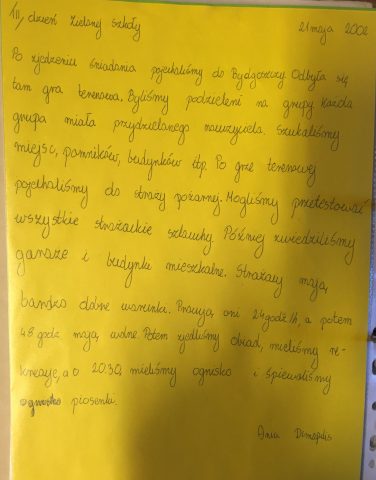 III dzień zielonej szkoły 21 maja 2002
Po zjedzeniu śniadania pojechaliśmy do Bydgoszczy. Odbyła się
tam gra terenowa. Byliśmy podzieleni na grupy. Każda
grupa miała przydzielonego nauczyciela. Szukaliśmy
miejsc, pomników, budynków itp. Po grze terenowej
pojechaliśmy do straży pożarnej. Mogliśmy przetestować
wszystkie strażackie szlauchy. Później zwiedziliśmy
garaże i budynki mieszkalne. Strażacy mają
bardzo dobre warunki. Pracują oni 24godz/h, a potem
48 godz mają wolne. Potem zjedliśmy obiad, mieliśmy re-
kreację, a o 20³⁰ mieliśmy ognisko i śpiewaliśmy
piosenki.
Ania